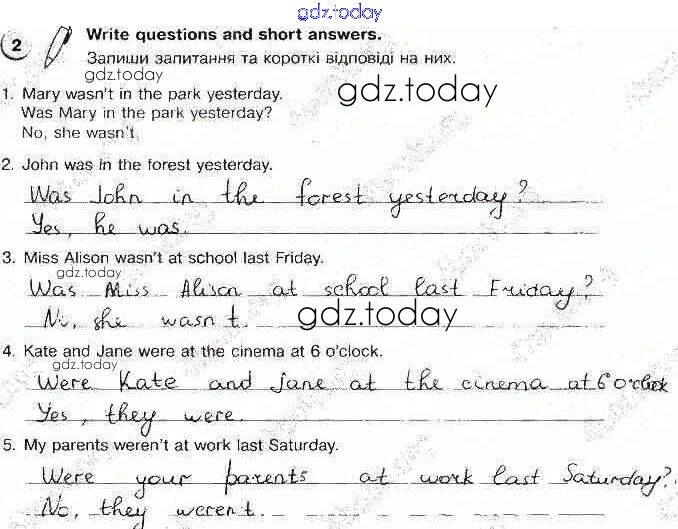 gdz.today
2 Write questions and short answers.
Запиши запитання та короткі відповіді на них.
gdz.today
1. Mary wasn't in the park yesterday.
gdz.today
Was Mary in the park yesterday?
No, she wasn't.
2. John was in the forest yesterday.
Was John in the forest yesterday?
Yes, he was.
3. Miss Alison wasn't at school last Friday.
gdz.today
Was Miss Alison at school last Friday?
No, she wasn t.
gdz.today
4. Kate and Jane were at the cinema at 6 o'clock.
gdz.today
Were Kate and Jane at the cinema at 6 o'clock
Yes, they were.
5. My parents weren't at work last Saturday.
Were your parents at work last Saturday?
No, they weren t.